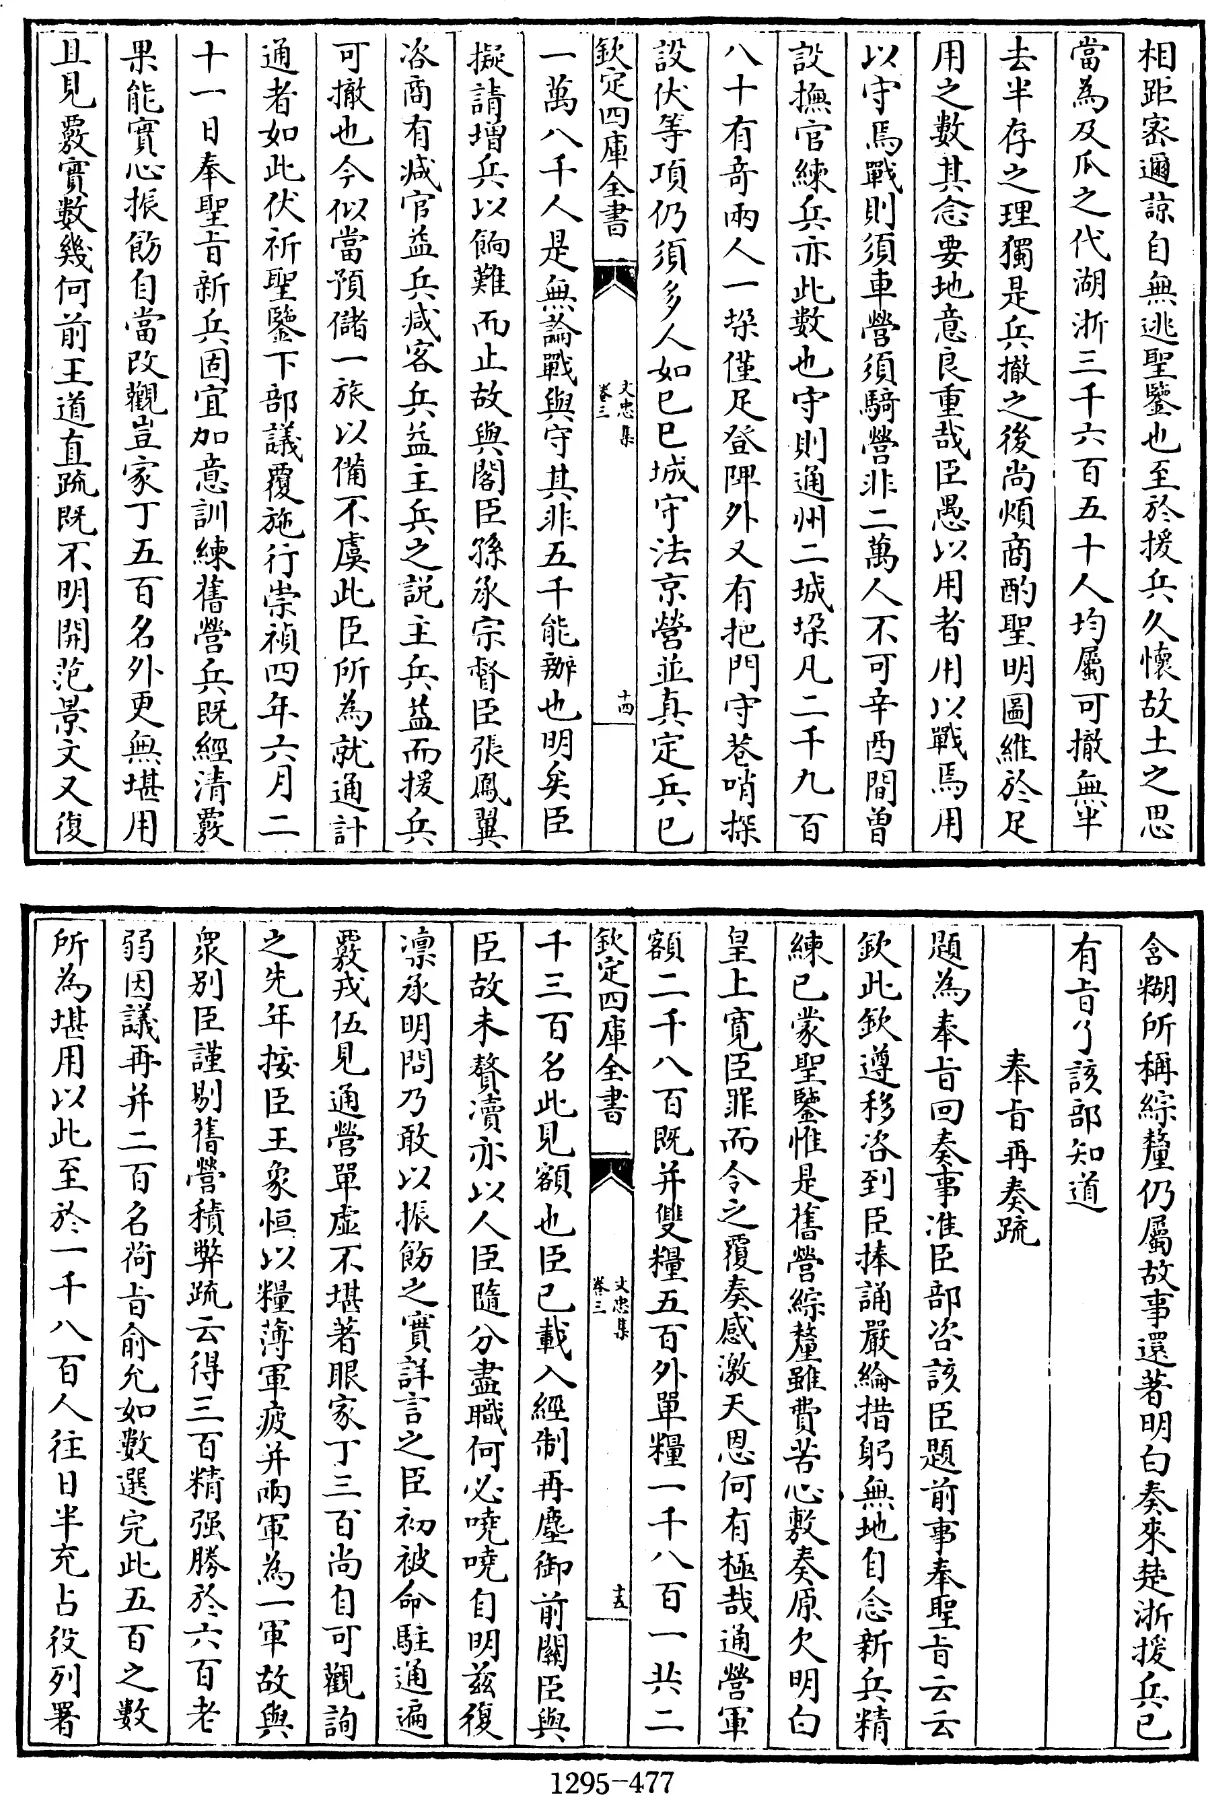 相距密邇諒自無逃聖鑒也至於援兵久懷故土之思
當為及瓜之代湖浙三千六百五十人均屬可撤無半
去半存之理獨是兵撤之後尚煩商酌聖明圖維於足
用之數其念要地意良重哉臣愚以用者用以戰焉用
以守焉戰則須車營須騎營非二萬人不可辛酉間曾
設撫官練兵亦此數也守則通州二城垜凡二千九百
八十有奇兩人一垜僅足登陴外又有把門守巷哨探
設伏等項仍須多人如已巳城守法京營並真定兵已
欽定四庫全書
文忠集
卷三
十四
一萬八千人是無論戰與守其非五千能辦也明矣臣
擬請增兵以餉難而止故與閣臣孫承宗督臣張鳳翼
咨商有減官益兵減客兵益主兵之説主兵益而援兵
可撤也今似當預儲一旅以備不虞此臣所為就通計
通者如此伏祈聖鑒下部議覆施行崇禎四年六月二
十一日奉聖旨新兵固宜加意訓練舊營兵既經清覈
果能實心振飭自當改觀豈家丁五百名外更無堪用
且見覈實數幾何前王道直疏既不明開范景文又復
含糊所稱綜釐仍屬故事還著明白奏來楚浙援兵已
有旨了該部知道
奉旨再奏疏
題為奉旨回奏事准臣部咨該臣題前事奉聖旨云云
欽此欽遵移咨到臣捧誦嚴綸措躬無地自念新兵精
練已蒙聖鑒惟是舊營綜釐雖費苦心敷奏原欠明白
皇上寬臣罪而令之覆奏感激天恩何有極哉通營軍
額二千八百既并雙糧五百外單糧一千八百一共二
欽定四庫全書
文忠集
卷三
十五
千三百名此見額也臣已載入經制再塵御前關臣與
臣故未贅瀆亦以人臣隨分盡職何必嘵嘵自明兹復
凛承明問乃敢以振飭之實詳言之臣初被命駐通遍
覈戎伍見通營單虛不堪著眼家丁三百尚自可觀詢
之先年按臣王象恒以糧薄軍疲并兩軍為一軍故與
衆別臣謹剔舊營積弊疏云得三百精强勝於六百老
弱因議再并二百名荷旨俞允如數選完此五百之數
所為堪用以此至於一千八百人往日半充占役列署
1295-477